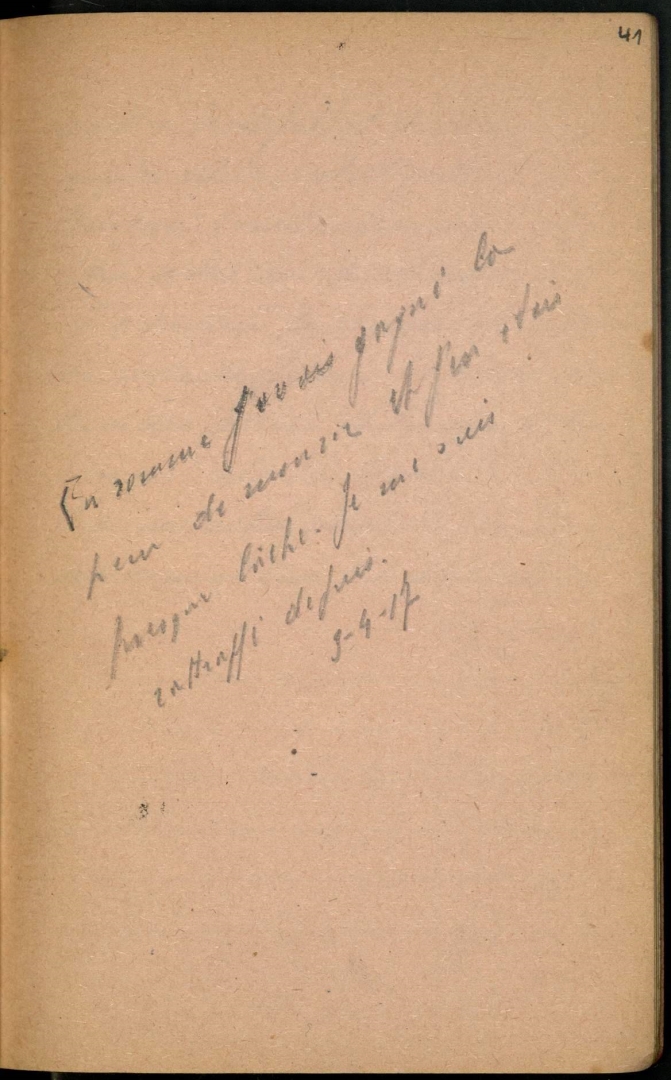 41
En somme j'avais gagné la
peur de mourir et j'en étais
presque lâche. Je me suis
rattrappé depuis.
9-4-17